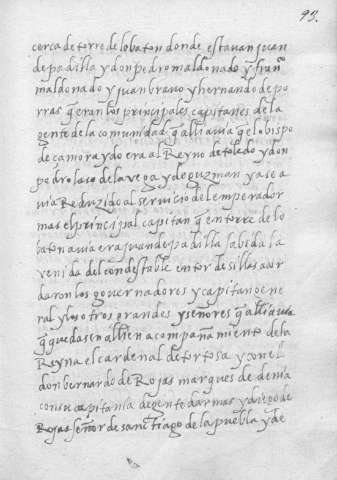 93.
cerca de torre de lobaton donde estavan juan
de padilla y don pedro maldonado y fran^co
maldonado y juan bravo y hernando de po
rras q̃ eran los principales capitanes de la
gente de la comunidad q̃ alli avia q̃ el obispo
de çamora ydo era al Reyno de toledo y don
pedro laso de la vega y de guzman ya se a
via Reduzido al servicio del emperador
mas el principal capitan q̃ en torre de lo
baton avia era juan de padilla sabida la
venida del condestable en tordesillas acor
daron los governadores y capitan gene
ral y los otros grandes y señores q̃ alli avia
q̃ quedasen alli en acompañamiento de la
Reyna el cardenal de tortosa y con el
don bernardo de Rojas marques de denia
con su capitania de gente darmas y diego de
Rojas señor de sanctiago de la puebla y de